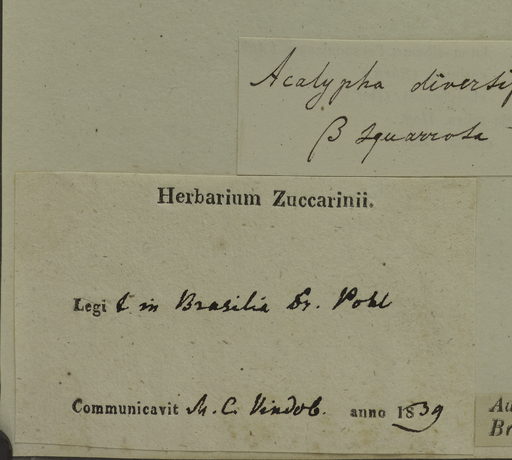 Acalypha diversif
β squarrosa
Herbarium Zuccarinii.
Legit in Brasilia Dr. Pohl
Communicavit M. C. Vindob. anno 1839
Au
Br